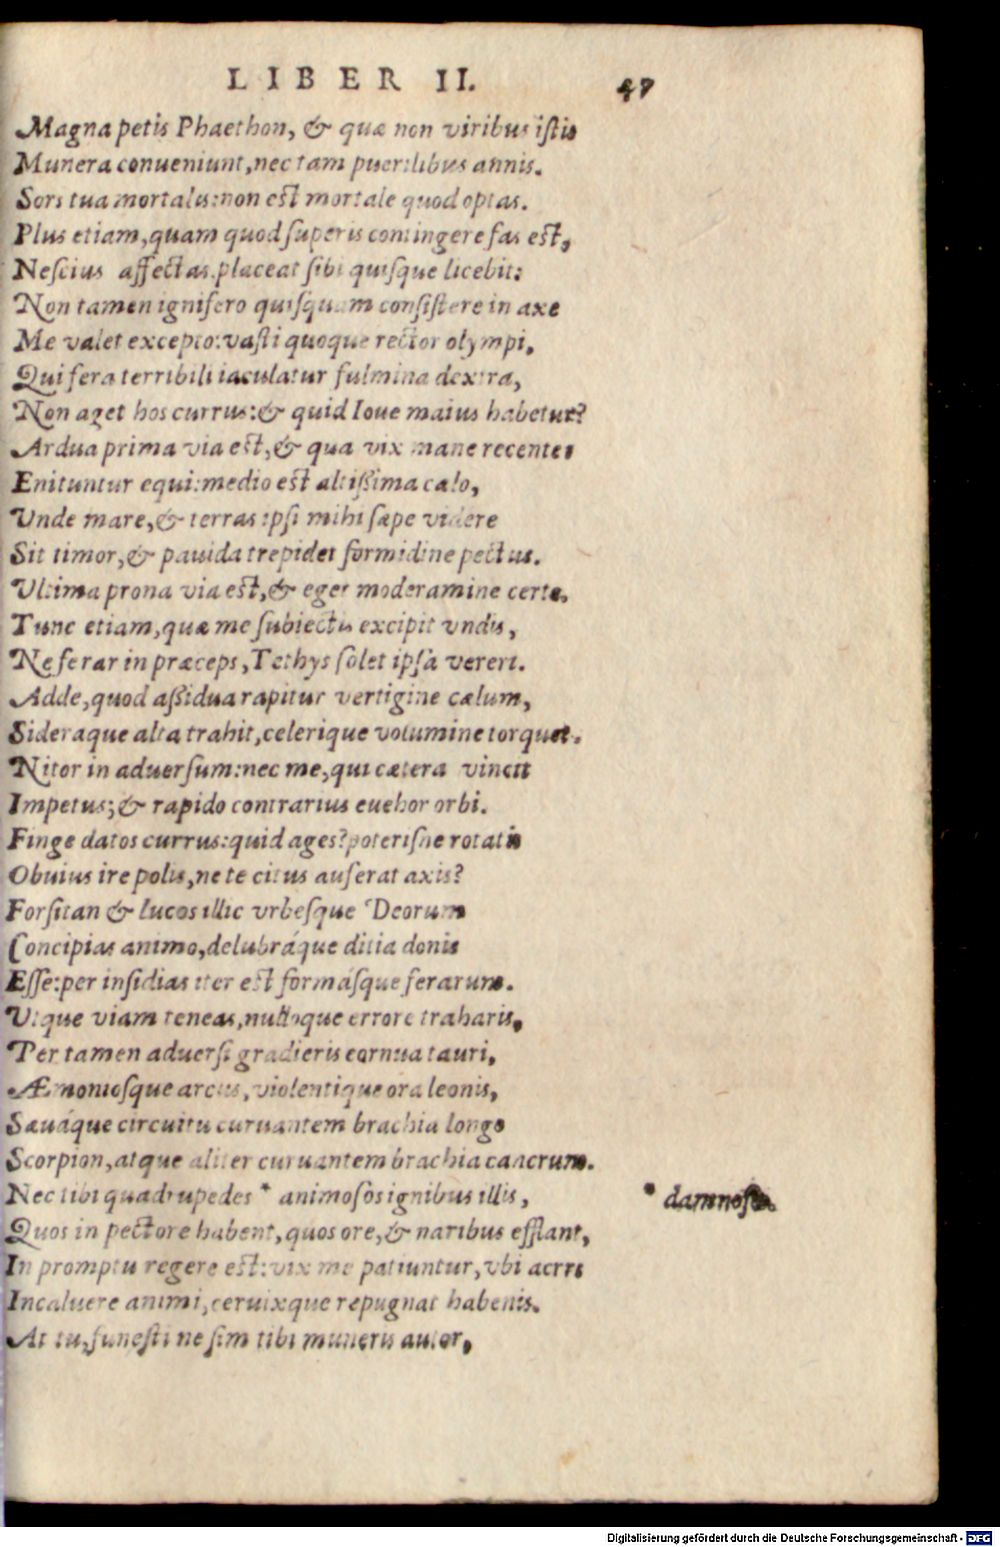 LIBER II. 47
Magna petis Phaethon, & quæ non viribus istis
Munera conueniunt, nec tam puerilibus annis.
Sors tua mortalis: non est mortale quod optas.
Plus etiam, quam quod superis contingere fas est,
Nescius affectas. placeat sibi quisque licebit:
Non tamen ignifero quisquam consistere in axe
Me valet excepto: vasti quoque rector olympi,
Qui fera terribili iaculatur fulmina dextra,
Non aget hos currus: & quid Ioue maius habetur?
Ardua prima via est, & qua vix mane recentes
Enituntur equi: medio est altissima cælo,
Vnde mare, & terras ipsi mihi sæpe videre
Sit timor, & pauida trepidet formidine pectus.
Vltima prona via est, & eget moderamine certo.
Tunc etiam, quæ me subiectis excipit vndis,
Ne ferar in præceps, Tethys solet ipsa vereri.
Adde, quod assidua rapitur vertigine cælum,
Sideraque alta trahit, celerique volumine torquet.
Nitor in aduersum: nec me, qui cætera vincit
Impetus; & rapido contrarius euehor orbi.
Finge datos currus: quid ages? poterisne rotatis
Obuius ire polis, ne te citus auferat axis?
Forsitan & lucos illic vrbesque Deorum
Concipias animo, delubráque ditia donis
Esse: per insidias iter est formásque ferarum.
Vtque viam teneas, nullóque errore traharis,
Per tamen aduersi gradieris cornua tauri,
Æmoniosque arcus, violentique ora leonis,
Sæuáque circuitu curuantem brachia longo
Scorpion, atque aliter curuantem brachia cancrum.
Nec tibi quadrupedes * animosos ignibus illis,
* damnosos
Quos in pectore habent, quos ore, & naribus efflant,
In promptu regere est: vix me patiuntur, vbi acres
Incaluere animi, ceruixque repugnat habenis.
At tu, funesti ne sim tibi muneris autor,
Digitalisierung gefördert durch die Deutsche Forschungsgemeinschaft - DFG